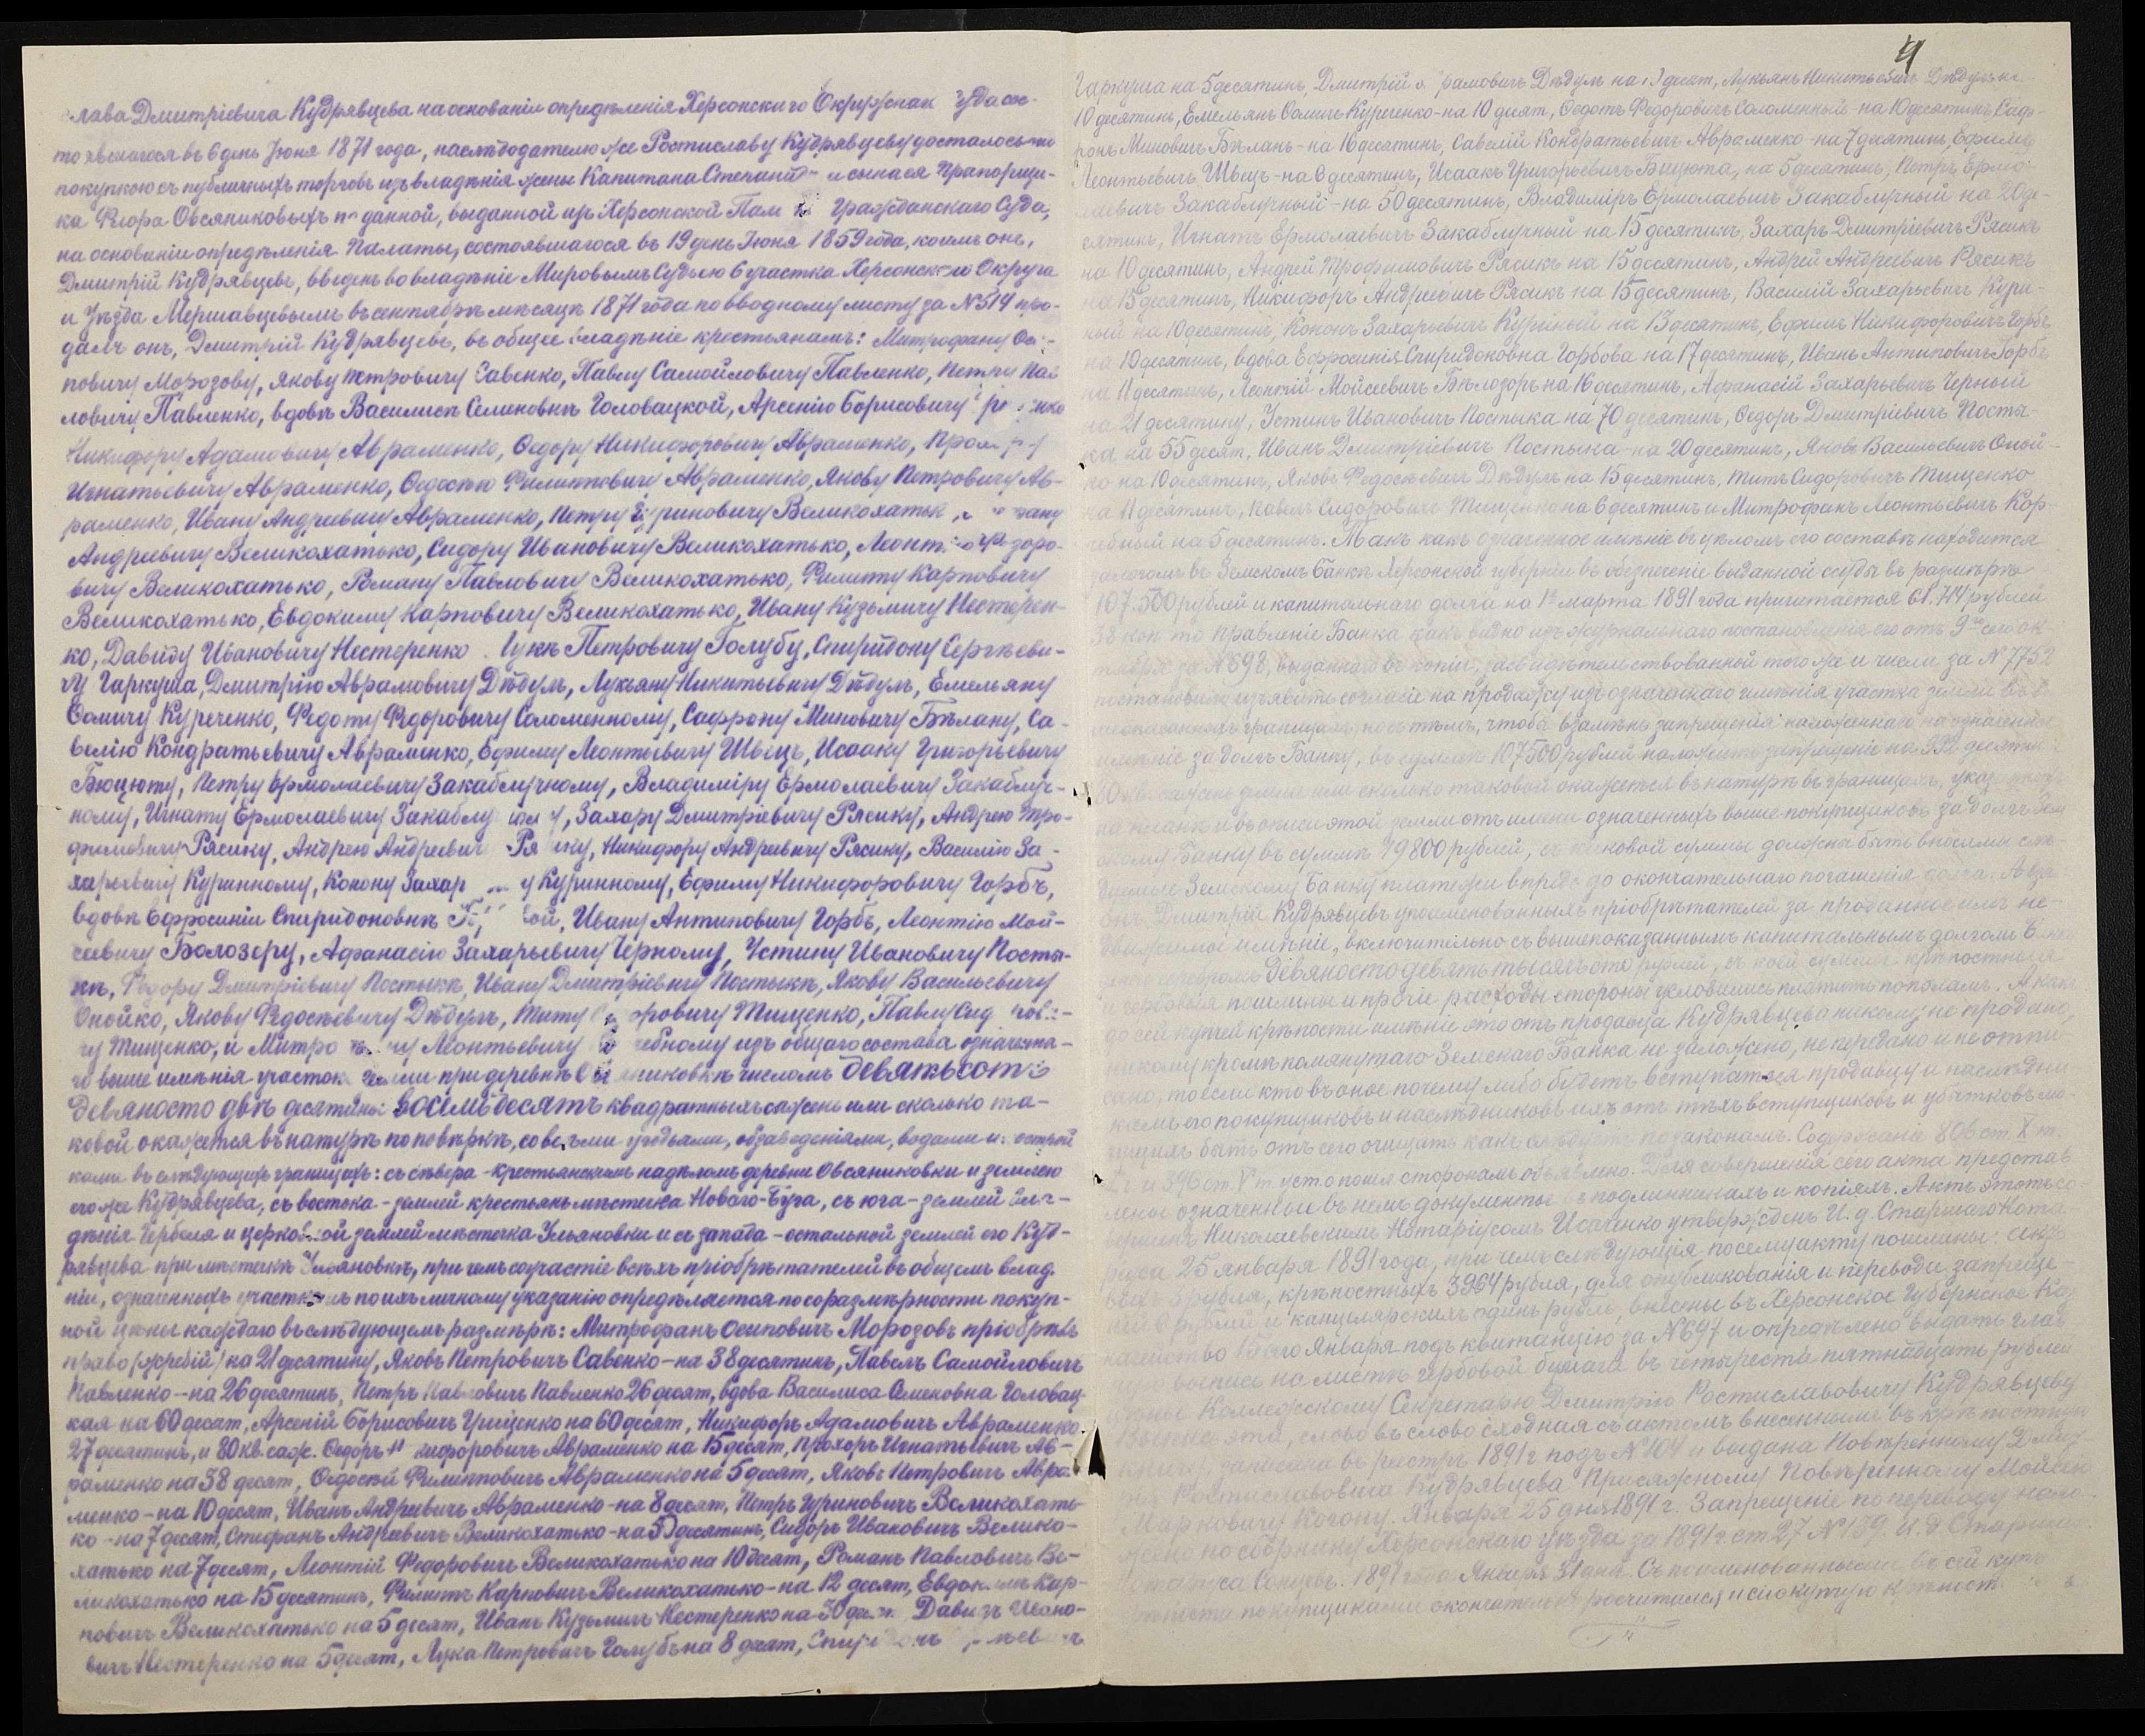 слава Дмитріевича Кудрявцева на основаніи опредѣленія Херсонскаго Окружнаго Суда сос-
тоявшагося въ 6 день Іюня 1871 года, наслѣдодателю же Ростиславу Кудрявцеву досталось
покупкою съ публичныхъ торговъ изъ владѣнія жены Капитана и сына ея Прапорщи-
ка Флора Овсяниковыхъ по данной, выданной изъ Херсонской Палаты Гражданскаго Суда,
на основаніи опредѣленія Палаты, состоявшагося въ 19 день Іюня 1859 года, коимъ онъ,
Дмитрій Кудрявцевъ, введенъ во владѣніе Мировымъ Судьею 6 участка Херсонскаго Округа
и Уѣзда Мершавцевымъ въ сентябрѣ мѣсяцѣ 1871 года по вводному листу за № 514 про-
далъ онъ, Дмитрій Кудрявцевъ, въ общее владѣніе крестьянамъ: Митрофану Оси-
повичу Морозову, Якову Петровичу Савенко, Павлу Самойловичу Павленко, Петру Пав
ловичу Павленко, вдовѣ Василисѣ Семеновнѣ Головацкой, Арсенію Борисовичу
Никифору Адамовичу Авраменко, Ѳедору Никифоровичу Авраменко, Прохору
Игнатьевичу Авраменко, Ѳедосѣю Филипповичу Авраменко, Якову Петровичу Ав-
раменко, Ивану Андреевичу Авраменко, Петру Гуриновичу Великохатько,
Андреевичу Великохатько, Сидору Ивановичу Великохатько, Леонтію Ѳедоро-
вичу Великохатько, Роману Павловичу Великохатько, Филиппу Карповичу
Великохатько, Евдокиму Карповичу Великохатько, Ивану Кузьмичу Нестерен-
ко, Давиду Ивановичу Нестеренко, Лукѣ Петровичу Голубу, Спиридону Сергѣеви-
чу Гаркуша, Дмитрію Аврамовичу Дѣдулъ, Лукьяну Никитьевичу Дѣдулъ, Емельяну
Ѳомичу Куреченко, Федоту Федоровичу Соломенному, Сафрону Миновичу Бѣлану, Са-
велію Кондратьевичу Авраменко, Ефиму Леонтьевичу Швець, Исааку Григорьевичу
Бюцюту, Петру Ермолаевичу Закаблучному, Владиміру Ермолаевичу Закаблуч-
ному, Игнату Ермолаевичу Закаблучному, Захару Дмитріевичу Рясику, Андрею Тро-
фимовичу Рясику, Андрею Андреевичу Рясику, Никифору Андреевичу Рясику, Василію За-
харьевичу Куринному, Конону Захарьевичу Куринному, Ефиму Никифоровичу Горбъ,
вдовѣ Ефросиніи Спиридоновнѣ Горбовой, Ивану Антиповичу Горбъ, Леонтію Мой-
сеевичу Бѣлозеру, Афанасію Захарьевичу Черному, Устину Ивановичу Посты-
кѣ, Ѳедору Дмитріевичу Постыкѣ, Ивану Дмитріевичу Постыкѣ, Якову Васильевичу
Опойко, Якову Федосѣевичу Дѣдулъ, Титу Сидоровичу Тищенко, Павлу Сидорови-
чу Тищенко, и Митрофану Леонтьевичу изъ общаго состава означенна-
го выше имѣнія участокъ земли при деревнѣ Овсяниковкѣ числомъ девятьсотъ
девяносто двѣ десятины восемьдесятъ квадратныхъ сажень или сколько та-
ковой окажется въ натурѣ по повѣркѣ, со всѣми угодьями, обзаведеніями, водами и
ками въ слѣдующихъ границахъ: съ сѣвера - крестьянскимъ надѣломъ деревни Овсяниковки и землею
его же Кудрявцева, съ востока - землей крестьянъ мѣстечка Новаго-Буга, съ юга - землей вла-
дѣнія Чербеля и церковной землей мѣстечка Ульяновки и съ запада - остальной землей его Куд-
рявцева при мѣстечкѣ Ульяновкѣ, при чемъ соучастіе всѣхъ пріобрѣтателей въ общемъ влад.
ніи, означеннымъ участкомъ по ихъ личному указанію опредѣляется по соразмѣрности покуп-
ной цѣны каждаго въ слѣдующемъ размѣрѣ: Митрофанъ Осиповичъ Морозовъ пріобрѣлъ
право (жребій) на 21 десятину, Яковъ Петровичъ Савенко - на 38 десятинъ, Павелъ Самойловичъ
Павленко - на 26 десятинъ, Петръ Павловичъ Павленко 26 десят, вдова Василиса Семеновна Головац-
кая на 60 десят, Арсеній Борисовичъ Грищенко на 60 десят, Никифоръ Адамовичъ Авраменко
27 десятинъ, и 80 кв. саж. Ѳедоръ Никифоровичъ Авраменко на 15 десят, Прохоръ Игнатьевичъ Ав-
раменко на 38 десят, Ѳедосѣй Филипповичъ Авраменко на 5 десят, Яковъ Петровичъ Авра-
менко - на 10 десят, Иванъ Андреевичъ Авраменко - на 8 десят, Петръ Гуриновичъ Великохать-
ко - на 7 десят, Стефанъ Андреевичъ Великохатько - на 5 десятинъ, Сидоръ Ивановичъ Велико-
хатько на 7 десят, Леонтій Федоровичъ Великохатько на 10 десят, Романъ Павловичъ Ве-
ликохатько на 15 десятинъ, Филиппъ Карповичъ Великохатько - на 12 десят, Евдокимъ Кар-
повичъ Великохатько на 5 десят, Иванъ Кузьмичъ Нестеренко на 30 десят. Давидъ Ивано-
вичъ Нестеренко на 5 десят, Лука Петровичъ Голубь на 8 десят, Спиридонъ Сергѣевичъ
4
Гаркуша на 5 десятинъ, Дмитрій Аврамовичъ Дѣдулъ на десят, Лукьянъ Никитьевичъ Дѣдулъ на
10 десятинъ, Емельянъ Ѳомичъ Куреченко - на 10 десят, Ѳедотъ Федоровичъ Соломенный - на 10 десятинъ, Саф-
ронъ Миновичъ Бѣланъ - на 16 десятинъ, Савелій Кондратьевичъ Авраменко - на 7 десятинъ, Ефимъ
Леонтьевичъ Швець - на 6 десятинъ, Исаакъ Григорьевичъ Бюцюта, на 5 десятинъ, Петръ Ермо-
лаевичъ Закаблучный - на 50 десятинъ, Владиміръ Ермолаевичъ Закаблучный на 20 де-
сятинъ, Игнатъ Ермолаевичъ Закаблучный на 15 десятинъ, Захаръ Дмитріевичъ Рясикъ
на 10 десятинъ, Андрей Трофимовичъ Рясикъ на 15 десятинъ, Андрей Андреевичъ Рясикъ
на 15 десятинъ, Никифоръ Андреевичъ Рясикъ на 15 десятинъ, Василій Захарьевичъ Кури-
ный на 10 десятинъ, Кононъ Захарьевичъ Куриный на 13 десятинъ, Ефимъ Никифоровичъ Горбъ
на 10 десятинъ, вдова Ефросинія Спиридоновна Горбова на 17 десятинъ, Иванъ Антиповичъ Горбъ
на 11 десятинъ, Леонтій Мойсеевичъ Бѣлозоръ на 16 десятинъ, Афанасій Захарьевичъ Черный
на 21 десятину, Устинъ Ивановичъ Постыка на 70 десятинъ, Ѳедоръ Дмитріевичъ Посты-
ка на 55 десят, Иванъ Дмитріевичъ Постыка на 20 десятинъ, Яковъ Васильевичъ Опой-
ко на 10 десятинъ, Яковъ Федосѣевичъ Дѣдулъ на 15 десятинъ, Титъ Сидоровичъ Тищенко
на 11 десятинъ, Павелъ Сидоровичъ Тищенко на 6 десятинъ и Митрофанъ Леонтьевичъ Кор-
чебный на 5 десятинъ. Такъ какъ означенное имѣніе въ цѣломъ его составѣ находится
залогомъ въ Земскомъ Банкѣ Херсонской губерніи въ обезпеченіе выданной ссуды въ размѣрѣ
107.500 рублей и капитальнаго долга на 1е марта 1891 года причитается 61.744 рублей
38 коп то Правленіе Банка какъ видно изъ журнальнаго постановленія его отъ 9го сего ок
тября за № 698, выданнаго въ копіи, засвидѣтельствованной того же и числа за № 7752
постановило изъявить согласіе на продажу изъ означеннаго имѣнія участка земли въ
границахъ, но съ тѣмъ, чтобы взамѣнъ запрещенія наложеннаго на означенное
имѣніе за долгъ Банку, въ суммѣ 107500 рублей наложить запрещеніе на 992 десятины
80 кв. сажень земли или сколько таковой окажется въ натурѣ въ границахъ, указанныхъ
на планѣ и въ описи этой земли отъ имени означенныхъ выше покупщиковъ за долгъ Зем
скому Банку въ суммѣ 49800 рублей, съ каковой суммы должны быть вносимы слѣ-
дуемые Земскому Банку платежи впредь до окончательнаго погашенія долга. А взялъ
онъ, Дмитрій Кудрявцевъ упоименованныхъ пріобрѣтателей за проданное имъ не-
движимое имѣніе, включительно съ вышепоказаннымъ капитальнымъ долгомъ Банка
серебромъ девяносто девять тысячъ сто рублей, съ коей суммы крѣпостныя
и гербовыя пошлины и прочіе расходы стороны условились платить пополамъ. А какъ
до сей купчей крѣпости имѣніе это отъ продавца Кудрявцева никому не продано,
никому кромѣ помянутаго Земскаго Банка не заложено, не передано и не отпи
сано, то если кто въ оное почему либо будетъ вступаться продавцу и наслѣдни-
камъ его покупщиковъ и наслѣдниковъ ихъ отъ тѣхъ вступщиковъ и убытковъ мо-
гущихъ быть отъ сего очищать какъ слѣдуетъ по законамъ. Содержаніе 806 ст. X т.
и 396 ст. V т. уст. о пошл. сторонамъ объявлено. Для совершенія сего акта представ-
лены означенные въ немъ документы въ подлинникахъ и копіяхъ. Актъ этотъ со-
вершенъ Николаевскимъ Нотаріусомъ Исаченко утвержденъ И. д. Старшаго Нота-
ріуса 25 января 1891 года, при чемъ слѣдующія по сему акту пошлины: акто-
выхъ 3 рубля, крѣпостныхъ 3964 рубля, для опубликованія и перевода запреще-
ній рублей и канцелярскихъ одинъ рубль, внесены въ Херсонское Губернское Каз-
начейство Января подъ квитанцію за № 647 и опредѣлено выдать глав
ную выпись на листѣ гербовой бумаги въ четыреста пятнадцать рублей
Коллежскому Секретарю Дмитрію Ростиславовичу Кудрявцеву
Выпись эта, слово въ слово сходная съ актомъ внесеннымъ въ крѣпостную
книгу записана въ реестръ 1891 г подъ № 104 и выдана Повѣренному Дмит-
рія Ростиславовича Кудрявцева Присяжному Повѣренному Мойсею
Марковичу Когону. Января 25 дня 1891 г. Запрещеніе по переводу нало-
жено по сборнику Херсонскаго уѣзда за 1891 г. ст. 27 № 139. И. д. Старшаго
Нотаріуса Сонцевъ. 1891 года Января 31 дня. Съ поименованными въ сей купчей
крѣпости покупщиками окончательно расчитался и сію купчую крѣпость